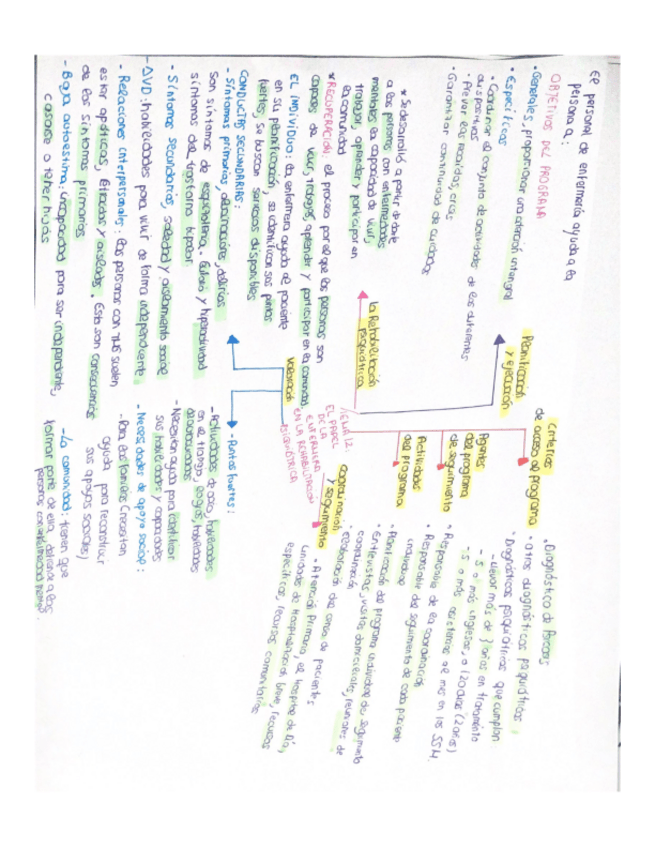 El personal de enfermería ayuda a la
persona a:
OBJETIVOS DEL PROGRAMA
• Generales, proporcionar una atención integral
• Específicos
• Coordinar el conjunto de actividades de los diferentes
dispositivos
• Prever las recaídas, crisis
• Garantizar continuidad de cuidados
Planificación
y ejecución
* Se desarrolla a partir de darle
a las personas con enfermedades
mentales la capacidad de vivir,
trabajar, aprender y participar en
la comunidad
* RECUPERACIÓN: el proceso por el que las personas son
capaces de vivir, trabajar, aprender y participar en la comunidad
la Rehabilitación
psiquiátrica
EL INDIVIDUO: la enfermera ayuda al paciente
en su planificación, se identifican sus puntos
fuertes, se buscan servicios disponibles
CONDUCTAS SECUNDARIAS:
- Síntomas primarios, alucinaciones, delirios
son síntomas de esquizofrenia. Euforia y hiperactividad
síntomas del trastorno bipolar
- Síntomas secundarios, soledad y aislamiento social
- AVD: habilidades para vivir de forma independiente
- Relaciones interpersonales: las personas con suelen
estar apáticas, y aisladas. Esto son consecuencias
de los síntomas primarios
- Baja autoestima: incapacidad para ser independiente,
casarse o tener hijos
Valoración
TEMA 12:
EL PAPEL
DE LA
ENFERMERA
EN LA REHABILITACIÓN
PSIQUIÁTRICA
Criterios
de acceso al programa
• Diagnóstico de Psicosis
• Otros diagnósticos psiquiátricos
• Diagnósticos psiquiátricos que cumplan
- Llevar más de años en tratamiento
- 5 o más ingresos, o 120 días (2 años)
- 5 o más asistencias al mes en los SSM.
Agentes
del programa
de seguimiento
• Responsable de la coordinación
• Responsable del seguimiento de cada paciente
Actividades
del programa
• Planificación del programa individual de seguimiento
individual
• Entrevistas, visitas domiciliarias, reuniones de
coordinación
• Elaboración del censo de pacientes
Coordinación
y seguimiento
• Atención primaria, el Hospital de Día,
unidades de hospitalización breve, recursos
específicos, recursos comunitarios
- Puntos fuertes:
- Actividades de ocio, habilidades
en el trabajo, logros, habilidades
- Necesitan ayuda para identificar
sus habilidades y capacidades
- Necesidades de apoyo social:
- Para las familias (necesitan
ayuda para reconstruir
sus apoyos sociales)
- La comunidad: tienen que
formar parte de ella, defiende a las
personas con enfermedad mental.